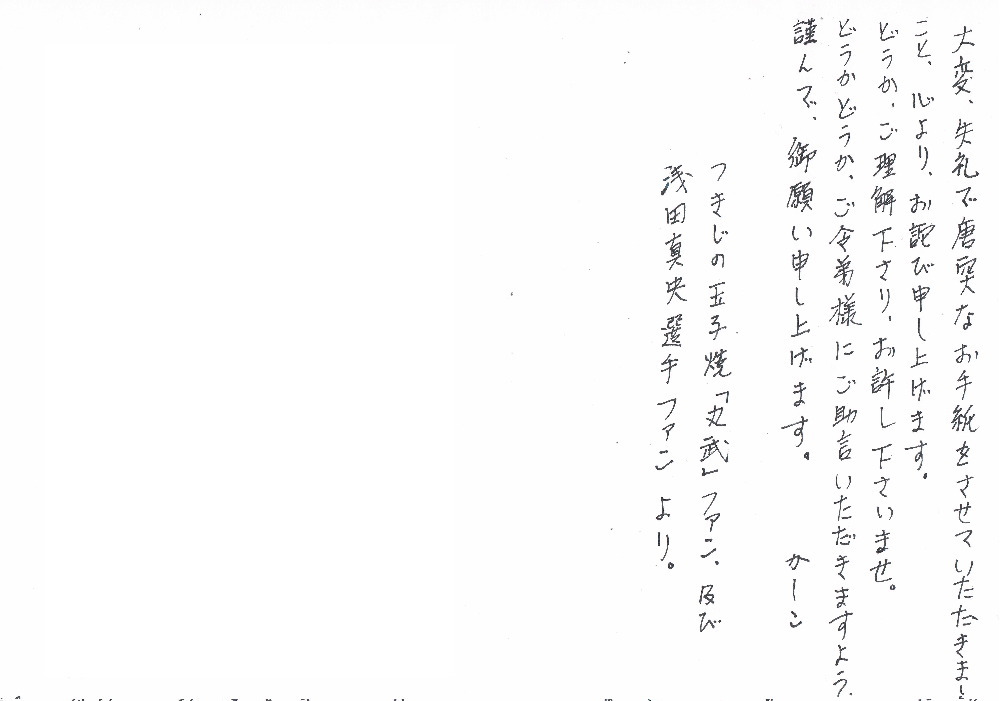 大変、失礼で唐突なお手紙をさせていただきまし
こと、心より、お詫び申し上げます。
どうか、ご理解下さり、お許し下さいませ。
どうかどうか、ご令弟様にご助言いただきますよう、
謹んで、御願い申し上げます。 かしこ
つきじの玉子焼「丸武」ファン、及び
浅田真央選手ファン より。